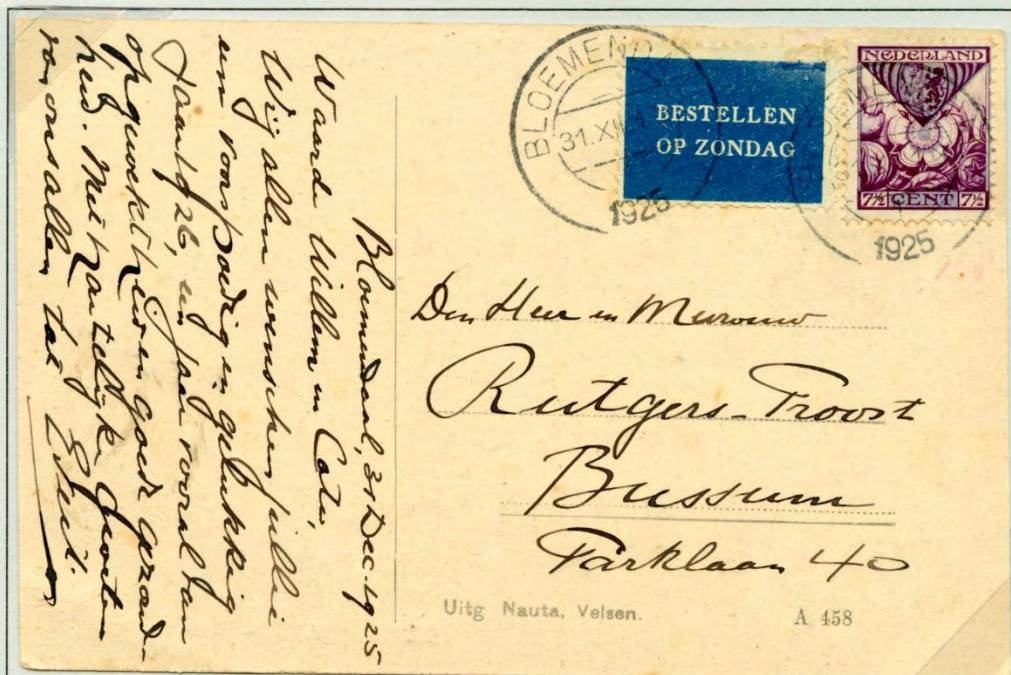 Bloemendaal, 31 Dec. 1925
Waarde Willem en Cato,
Wij allen wenschen jullie
een voorspoedig en gelukkig
Jaar 1926, een jaar vooral van
opgewektheid en goede gezond-
heid. Met hartelijke groeten
van ons allen, tot
BLOEMEND
31.XII
1925
BESTELLEN
OP ZONDAG
NEDERLAND
7½ CENT 7½
1925
Den Heer en Mevrouw
Rutgers-Troost
Bussum
Parklaan 40
Uitg Nauta, Velsen.
A 458